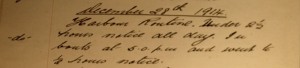 December 28th 1914
-do- Harbour Routine. Under 2½
hours notice all day. In
boats at 5.0 pm and went to
½ hours notice.